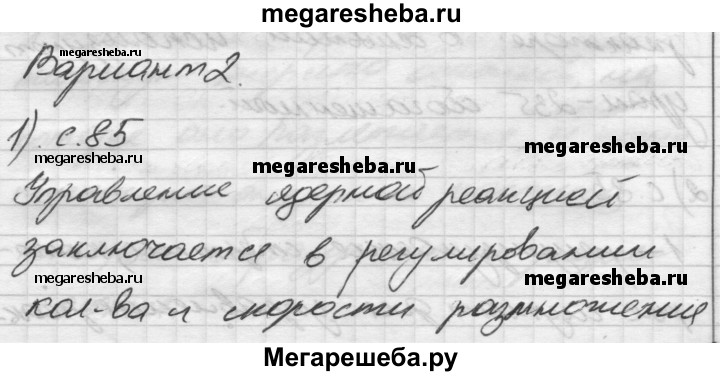 megaresheba.ru
Вариант 2.
megaresheba.ru megaresheba.ru
1). с.85
megaresheba.ru megaresheba.ru
Управление ядерной реакцией
заключается в регулировании
megaresheba.ru megaresheba.ru
кол-ва и скорости размножения
Мегарешеба.ру